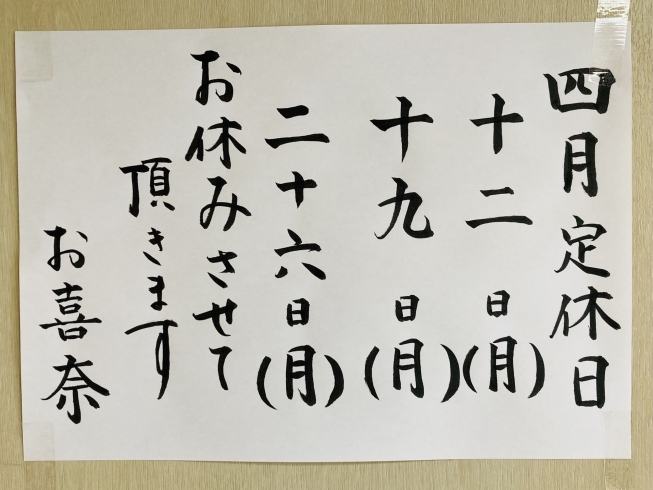 四月定休日
十二日(月)
十九日(月)
二十六日(月)
お休みさせて
頂きます
お喜奈